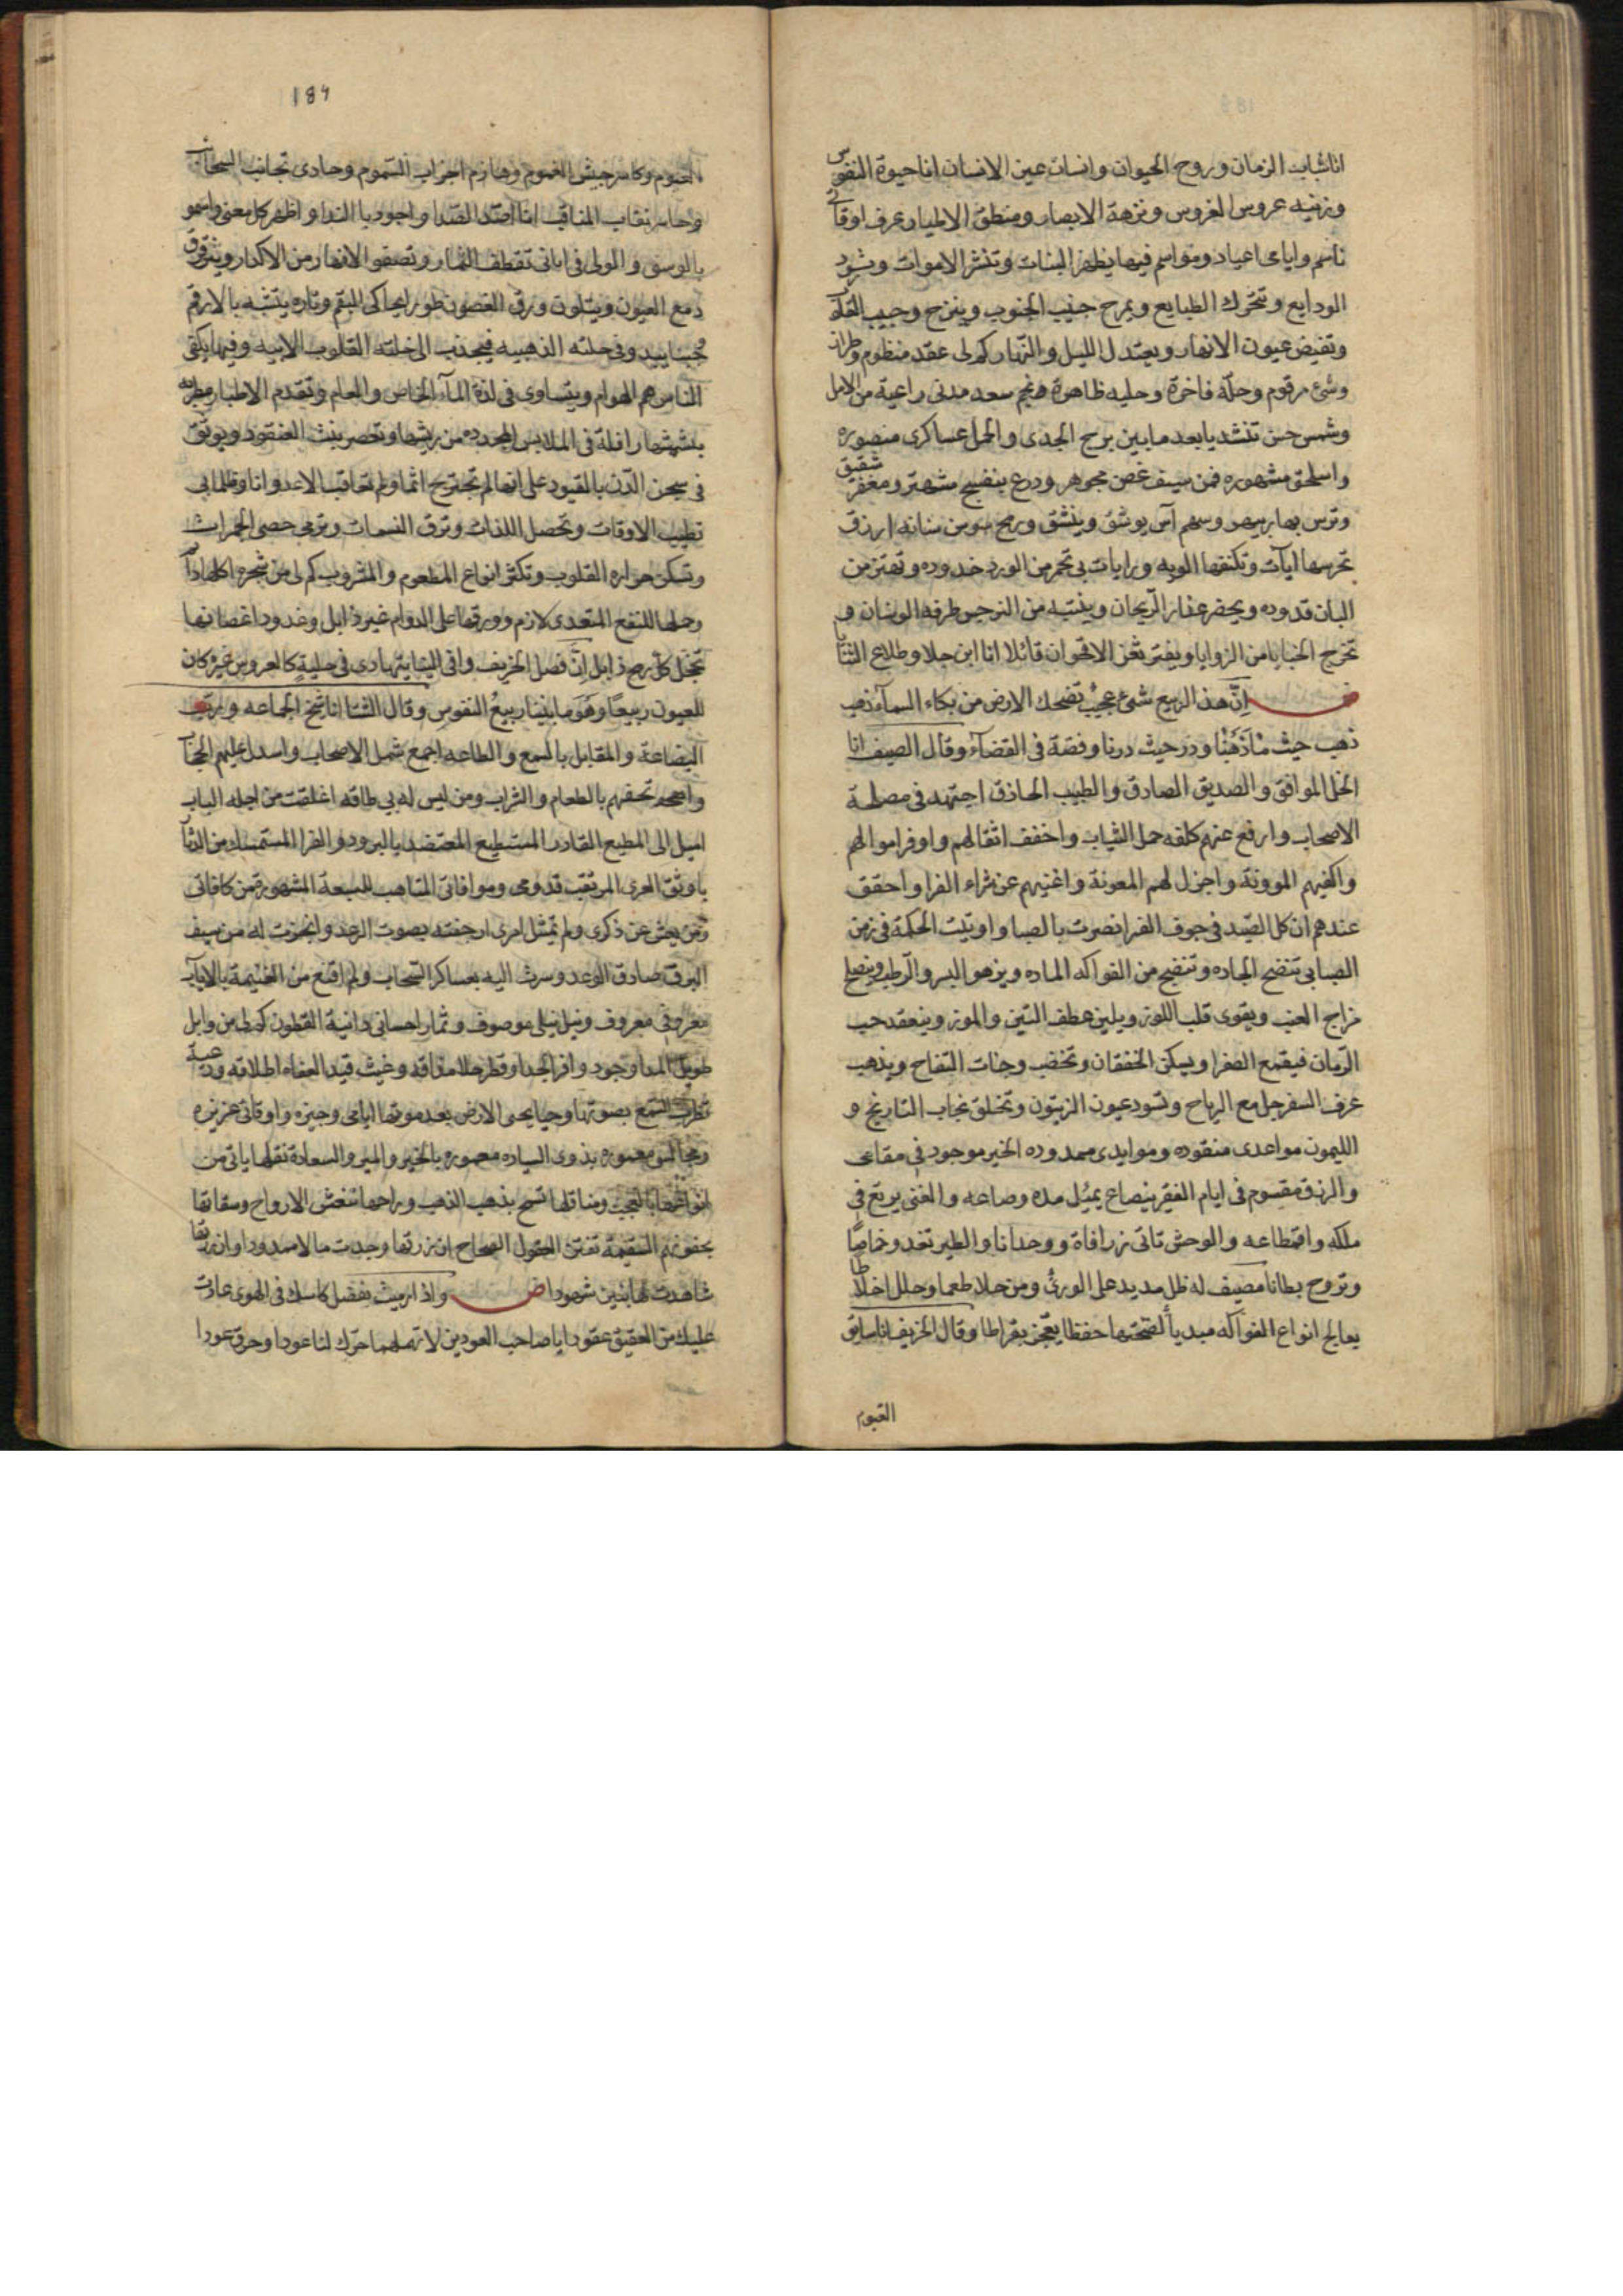 انا شباب الزمان وروح الحيوان وانسان عين الانسان انا حيوة النفوس
وزينه عروس الغروس ونزهة الابصار ومنطق الاطيار عرف اوقاتى
ناسم وايامى اعياد ومواسم فيها يظهر النبات وتنشر الاموات وترد
الودايع وتتحرك الطبايع ويمرح جنيب الجنوب وينزح وجيب القلوب
وتفيض عيون الانهار ويعتدل الليل والنهار كم لى عقد منظوم وطراز
وشئ مرقوم وحلة فاخرة وحليه ظاهرة ونجم سعد يدنى راعيه من الامل
وشمس حسن تنشد يا بعد ما بين برج الجدى والحمل عساكرى منصوره
واسلحتى مشهوره فمن سيف غصن مجوهر ودرع بنفسج مشهر ومغفر شقيق
وترس بهار يبهر وسهم آس يرشق وينشق ورمح سوسن سنانه ازرق
تحرسها آيات وتكنفها الويه ورايات بى تحمر من الورد خدوده وتهتز من
البان قدوده ويخضر عذار الريحان وينتبه من النرجس طرفه الوسنان و
تخرج الخبايا من الزوايا ويفتر ثغر الاقحوان قائلا انا ابن جلا وطلاع الثنايا
ان هذا الربيع شئ عجيب تضحك الارض من بكاء السماء ذهب
ذهب حيث ما ذهبنا ودر حيث درنا وفضة فى الفضآء وقال الصيف انا
الخل الموافق والصديق الصادق والطبيب الحاذق اجتهد فى مصلحة
الاصحاب وارفع عنهم كلفه حمل الثياب واخفف اثقالهم واوفر اموالهم
واكفيهم الموونة واجزل لهم المعونة واغنيهم عن شراء الفرا واحقق
عندهم ان كل الصيد فى جوف الفرا نصرت بالصبا واوتيت الحكمة فى زمن
الصبا بى تتضح الجاده وتنضج من الفواكه الماده ويزهو البسر والرطب وينصلح
مزاج العنب ويقوى قلب اللوز ويلين عطف التين والموز وينعقد حب
الرمان فيقمع الصفرا ويسكن الخفقان وتخضب وجنات التفاح ويذهب
عرف السفرجل مع الرياح وتسود عيون الزيتون وتخلق تيجان النارنج و
الليمون مواعدى منقوده وموايدى ممدوده الخير موجود فى مقامى
والرزق مقسوم فى ايام الفقير ينصاع بمثل مده وصاعه والغنى يرتع فى
ملكه واقطاعه والوحش تاتى زرافاة ووحدانا والطير تغدو خماصا
وتروح بطانا مصيف له ظل مديد على الورى ومن حلا طعما وحلل اخلاطا
يعالج انواع الفواكه مبديا لصحتها حفظا يعجز بقراطا وقال الخريف انا سايق
الغيوم
184
الغيوم وكاسر جيش الغموم وهازم احزاب السموم وحادى نجائب السحائب
وحاسر نقاب المناقب انا اصد الصدا واجود بالندا واظهر كل معنى واسمو
بالوسمى والولى فى ابانى تقطف الثمار وتصفو الانهار من الاكدار ويترقرق
دمع العيون ويتلون ورق الغصون طورا يحاكى البقم وتاره يتشبه بالارقم
وحينا يبدو فى حلته الذهبيه فيجذب الى خلته القلوب الابيه وفيها يكتفى
الناس هم الهوام ويتساوى فى لذة المآء الخاص والعام وتقدم الاطيار مطربه
بنشيشها رافلة فى الملابس المجدده من ريشها وتعصر بنت العنقود ويوثق
فى سجن الدن بالقيود على انها لم تجترح اثما ولم تعاقب الاعدوانا وظلما بى
تطيب الاوقات وتحصل اللذات وترق النسمات وترمى حصى الجمرات
وتسكن حراره القلوب وتكثر انواع المطعوم والمشروب كم لى من شجره اكلها دآئم
وحملها للنفع المتعدى لازم وورقها على الدوام غير ذابل وقدود اغصانها
تخجل كل رمح ذابل ان فصل الخريف وافى الينا يتهادى فى حلية كالعروس غيره كان
للعيون ربيعا وهو ما بيننا ربيع النفوس وقال الشتا انا شيخ الجماعه ورب
البضاعة والمقابل بالسمع والطاعه اجمع شمل الاصحاب واسدل عليهم الحجاب
واتحفهم بالطعام والشراب ومن ليس له بى طاقه اغلقت من اجله الباب
اميل الى المطيع القادر المستطيع المعتضد بالبرود والفرا المستمسك من الدثار
باوثق العرى المرتقب قدومى وموافاتى المتاهب للسبعة المشهورة من كافاتى
ومن يعش عن ذكرى ولم يمتثل امرى ارجفته بصوت الرعد وانجزت له من سيف
البرق صادق الوعد وسرت اليه بعساكر السحاب ولم اقنع من الغنيمة بالاياب
معروفى معروف ونيل نيلى موصوف وثمار احسانى دانية القطوف كم لى من وابل
طويل المدا وجود وافر الجدا وقطر حلا مذاقه وغيث قيد العفاة اطلاقه وديمة
تطرب السمع بصوتها وحيا يحيى الارض بعد موتها ايامى وجيزه واوقاتى عزيزه
ومجالسى معموره بذوى السياده مغموره بالخير والمير والسعادة نقلها ياتى من
انواعه بالعجب ومناقلها تسمح بذهب اللهب وراحها تنعش الارواح وسقاتها
بجفونهم السقيمة تفتن العقول الصحاح ان زرتها وجدت مالا ممدودا وان زرتها
شاهدت لها بنين شهودا واذا رميت بفضل كاسك فى الهوى عادت
عليك من العقيق عقودا يا صاحب العودين لا تهملهما حرك لنا عودا وحرق عودا